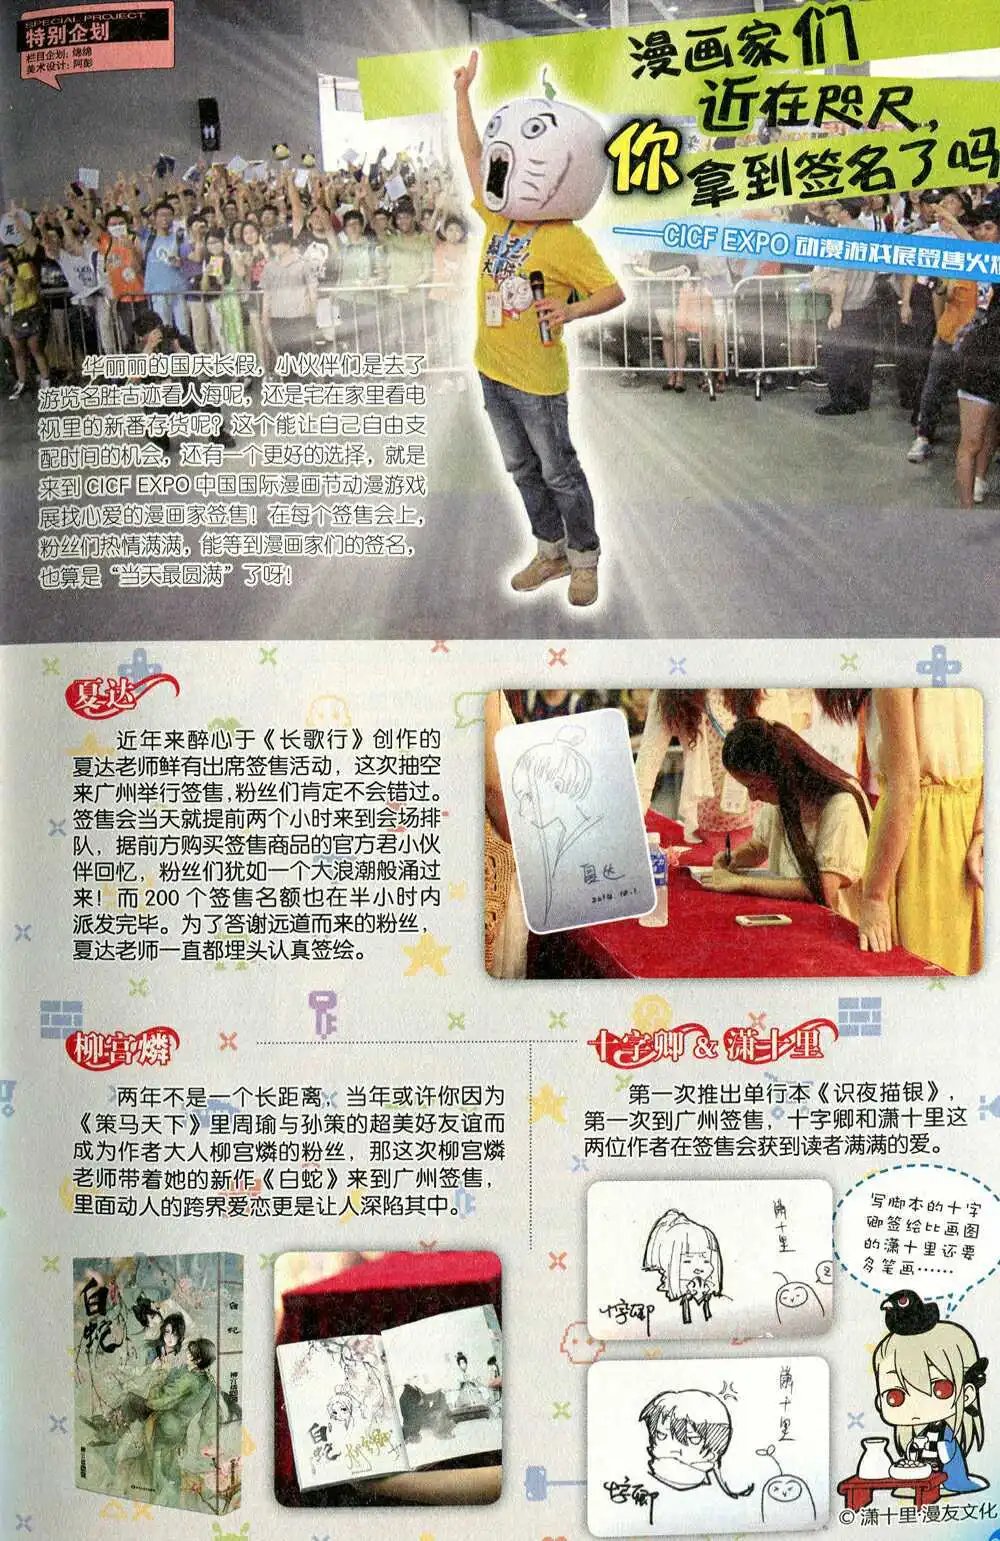 SPECIAL PROJECT
特别企划
栏目企划：绵绵
美术设计：阿彭
漫画家们
近在咫尺，
你拿到签名了吗
——CICF EXPO 动漫游戏展签售火
华丽丽的国庆长假，小伙伴们是去了
游览名胜古迹看人海呢，还是宅在家里看电
视里的新番存货呢？这个能让自己自由支
配时间的机会，还有一个更好的选择，就是
来到 CICF EXPO 中国国际漫画节动漫游戏
展找心爱的漫画家签售！在每个签售会上，
粉丝们热情满满，能等到漫画家们的签名，
也算是“当天最圆满”了呀！
夏达
近年来醉心于《长歌行》创作的
夏达老师鲜有出席签售活动，这次抽空
来广州举行签售，粉丝们肯定不会错过。
签售会当天就提前两个小时来到会场排
队，据前方购买签售商品的官方君小伙
伴回忆，粉丝们犹如一个大浪潮般涌过
来！而 200 个签售名额也在半小时内
派发完毕。为了答谢远道而来的粉丝，
夏达老师一直都埋头认真签绘。
夏达
2014.10.1.
柳宫燐
两年不是一个长距离，当年或许你因为
《策马天下》里周瑜与孙策的超美好友谊而
成为作者大人柳宫燐的粉丝，那这次柳宫燐
老师带着她的新作《白蛇》来到广州签售，
里面动人的跨界爱恋更是让人深陷其中。
白蛇
白蛇
白蛇
十字卿 & 潇十里
第一次推出单行本《识夜描银》，
第一次到广州签售，十字卿和潇十里这
两位作者在签售会获到读者满满的爱。
潇十里
十字卿
潇十里
十字卿
写脚本的十字
卿签绘比画图
的潇十里还要
多笔画……
© 潇十里·漫友文化